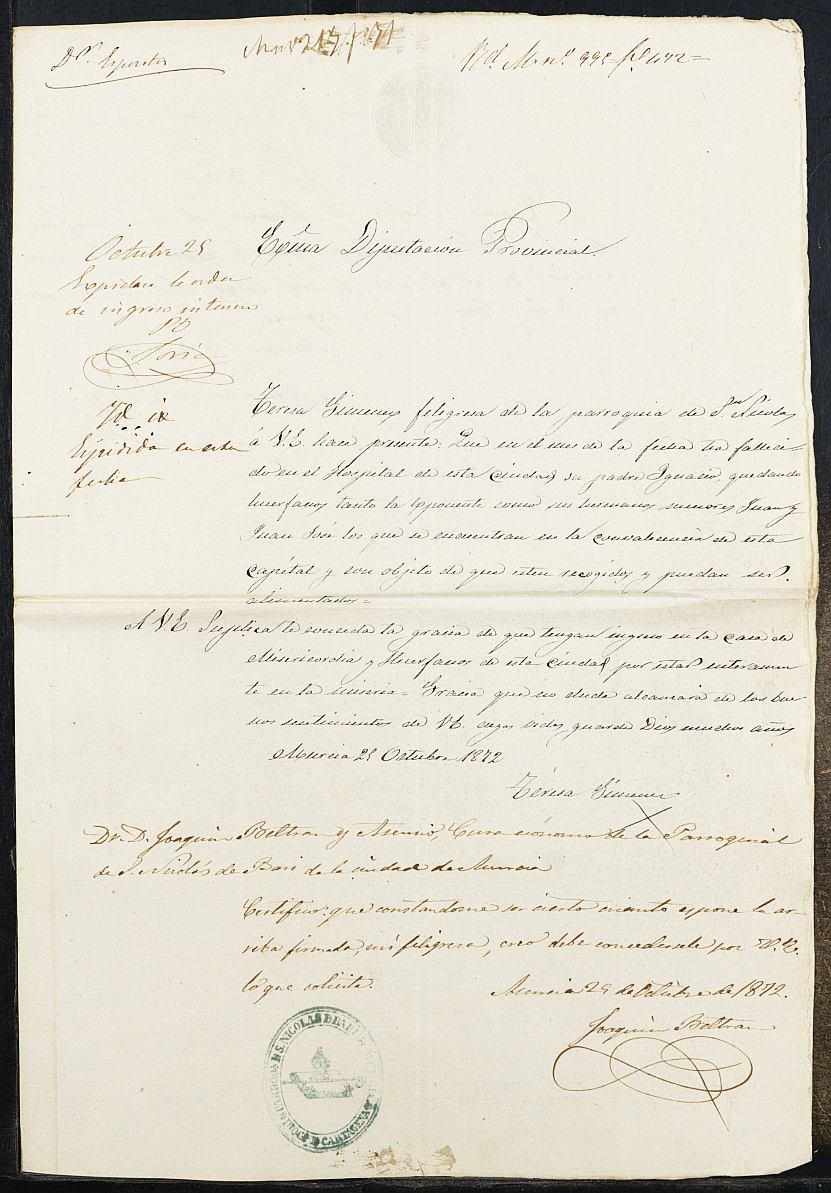 Dn. Espositos
Yd. M. nº. 995 fol 472=
Octubre 25
Espidase la orden
de ingreso interino
PD
Soria
Yd. id
Espedida en esta
fecha
Exma Diputacion Provincial.
Teresa Gimenez feligresa de la parroquia de Sn. Nicolas
á V.E. hace presente: Que en el mes de la fecha ha falleci-
do en el Hospital de esta Ciudad su padre Ignacio, quedando
huerfanos tanto la Esponente como sus hermanos menores Juan y
Juan José los que se encuentran en la Convalecencia de esta
Capital y son objeto de que esten recogidos y puedan ser
alimentados=
A V.E. Suplica le conceda la gracia de que tengan ingreso en la Casa de
Misericordia y Huerfanos de esta Ciudad por estar enteramen
te en la miseria= Gracia que no duda alcanzará de los bue-
nos sentimientos de V.E. cuya vida guarde Dios muchos años
Murcia 25 Octubre 1872
Teresa Gimenez
Dr. D. Joaquin Beltran y Asensio, Cura ecónomo de la Parroquial
de S. Nicolás de Bari de la ciudad de Murcia
Certifico: que constandome ser cierto cuanto espone la ar-
riba firmada, mi feligresa, creo debe concedersele por V.E.
lo que solicita.
Murcia 25 de Octubre de 1872.
Joaquin Beltran
PARROQA. DE S. NICOLAS DE BARI DE MURCIA
DIOCS. DE CARTAGENA